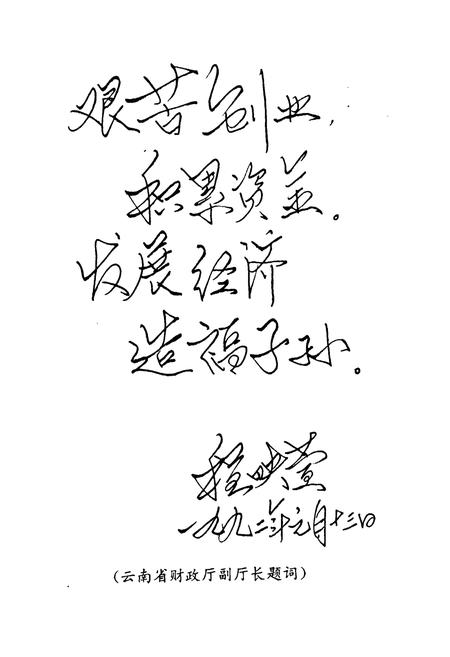 艰苦创业,
积累资金。
发展经济
造福子孙。
程映萱
一九九二年元月十三日
(云南省财政厅副厅长题词)